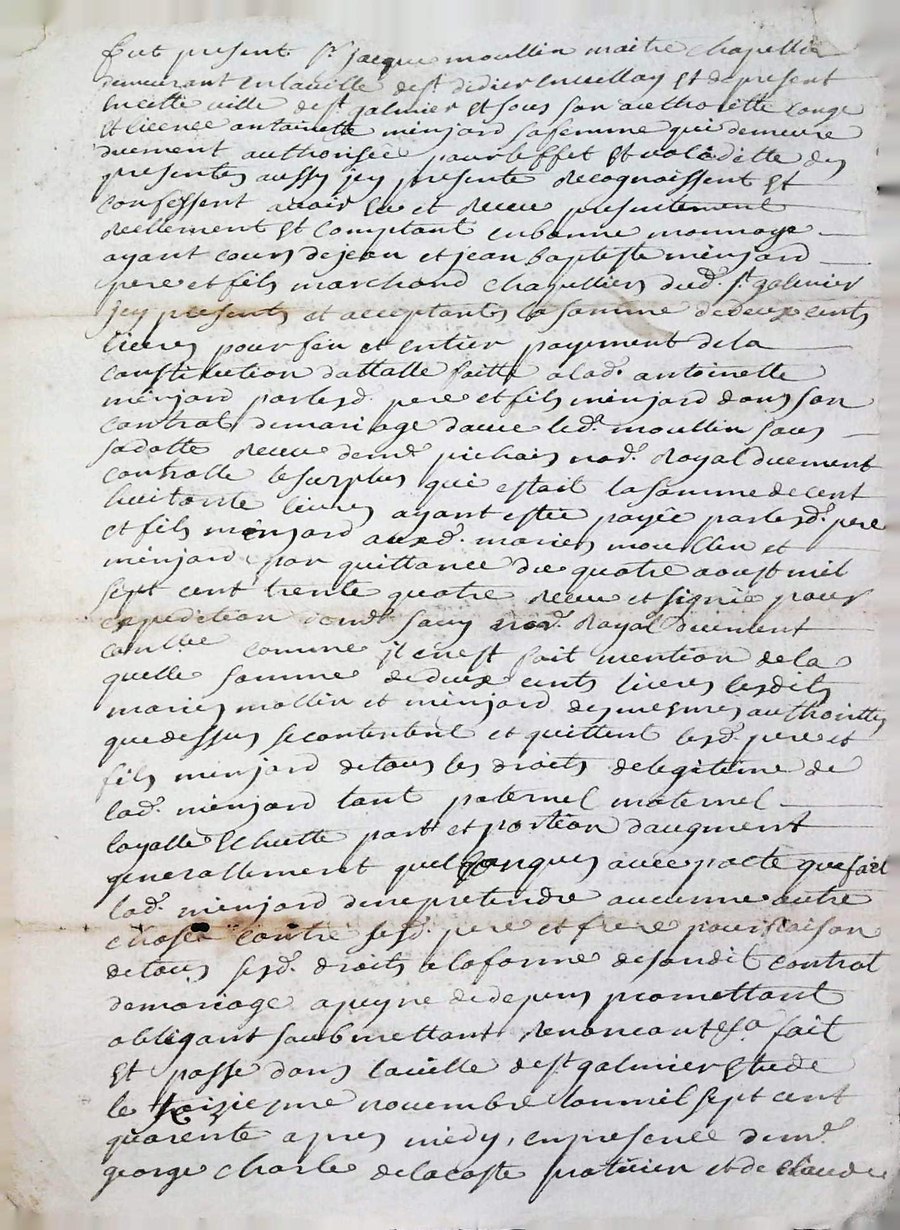 fut present Sr jacque moullin maitre chapellier
demeurant en la ville de st didier en vellay Et de present
en cette ville de st galmier Et sous son authoritte conge
Et licence antoinette minjard sa femme qui demeure
duement authorisée pour leffet Et validitte des
presentes aussy jcy presente Recognoissent Et
confessent avoir Eu et Receu presentement
Reellement Et comptant en bonne monnoye
ayant cours de jean et jean baptiste minjard
pere et fils marchand chapelliers dud. st galmier
jcy presents et acceptants la somme de deux cents
livres pour fin et entier payement de la
constitution dottalle faitte a lad. antoinette
minjard par lesd. pere et fils minjard dans son
contrat de mariage avec led. moullin sous
sa datte Receu de me pichais nore. Royal duement
controlle le surplus qui estoit la somme de cent
huitante livres ayant estée payée par lesd. pere
et fils minjard auxd. mariés moullin et
minjard par quittance du quatre aoust mil
sept cent trente quatre Receu et signée pour
expedition de me saury nore. Royal duement
conllée comme jl en est fait mention de la
quelle somme de deux cents livres lesdits
mariés mollin et minjard des mesmes authorittes
que dessus se contentent et quittent lesd. pere et
fils minjard de tous les droits de legitime de
lad. minjard tant paternel maternel
loyalle Echutte part et portion daugment
generallement quelconques avec pacte que fait
lad. minjard de ne pretendre aucunne autre
chose contre sesd. pere et frere pour Raison
de tous sesd. droits a la forme de sondit contrat
de mariage a peyne de depens promettant
obligant soubmettant Renoncant &a fait
Et passé dans la ville de st galmier Etude
le treiziesme novembre lan mil sept cent
quarente apres midy, en presence de me
george charle de la coste praticien et de claude